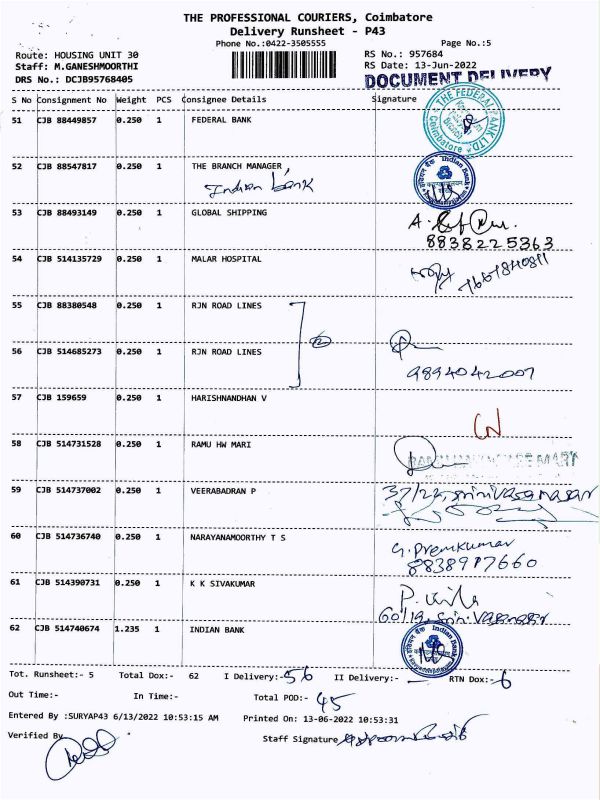 THE PROFESSIONAL COURIERS, Coimbatore
Delivery Runsheet - P43
Phone No.:0422-3505555 Page No.:5
Route: HOUSING UNIT 30 RS No.: 957684
Staff: M.GANESHMOORTHI RS Date: 13-Jun-2022
DRS No.: DCJB95768405 DOCUMENT DELIVERY
S No Consignment No Weight PCS Consignee Details Signature
51 CJB 88449857 0.250 1 FEDERAL BANK
THE FEDERAL BANK LTD. Coimbatore
52 CJB 88547817 0.250 1 THE BRANCH MANAGER,
Indian bank
Indian Bank
53 CJB 88493149 0.250 1 GLOBAL SHIPPING
8838225363
54 CJB 514135729 0.250 1 MALAR HOSPITAL
55 CJB 88380548 0.250 1 RJN ROAD LINES
56 CJB 514685273 0.250 1 RJN ROAD LINES
9894042007
57 CJB 159659 0.250 1 HARISHNANDHAN V
58 CJB 514731528 0.250 1 RAMU HW MARI
59 CJB 514737002 0.250 1 VEERABADRAN P
37/23, srinivasanagar
60 CJB 514736740 0.250 1 NARAYANAMOORTHY T S
G. Premkumar
8838917660
61 CJB 514390731 0.250 1 K K SIVAKUMAR
62 CJB 514740674 1.235 1 INDIAN BANK
Indian Bank
Tot. Runsheet:- 5 Total Dox:- 62 I Delivery:- 56 II Delivery:- RTN Dox:- 6
Out Time:- In Time:- Total POD:- 45
Entered By :SURYAP43 6/13/2022 10:53:15 AM Printed On: 13-06-2022 10:53:31
Verified By Staff Signature